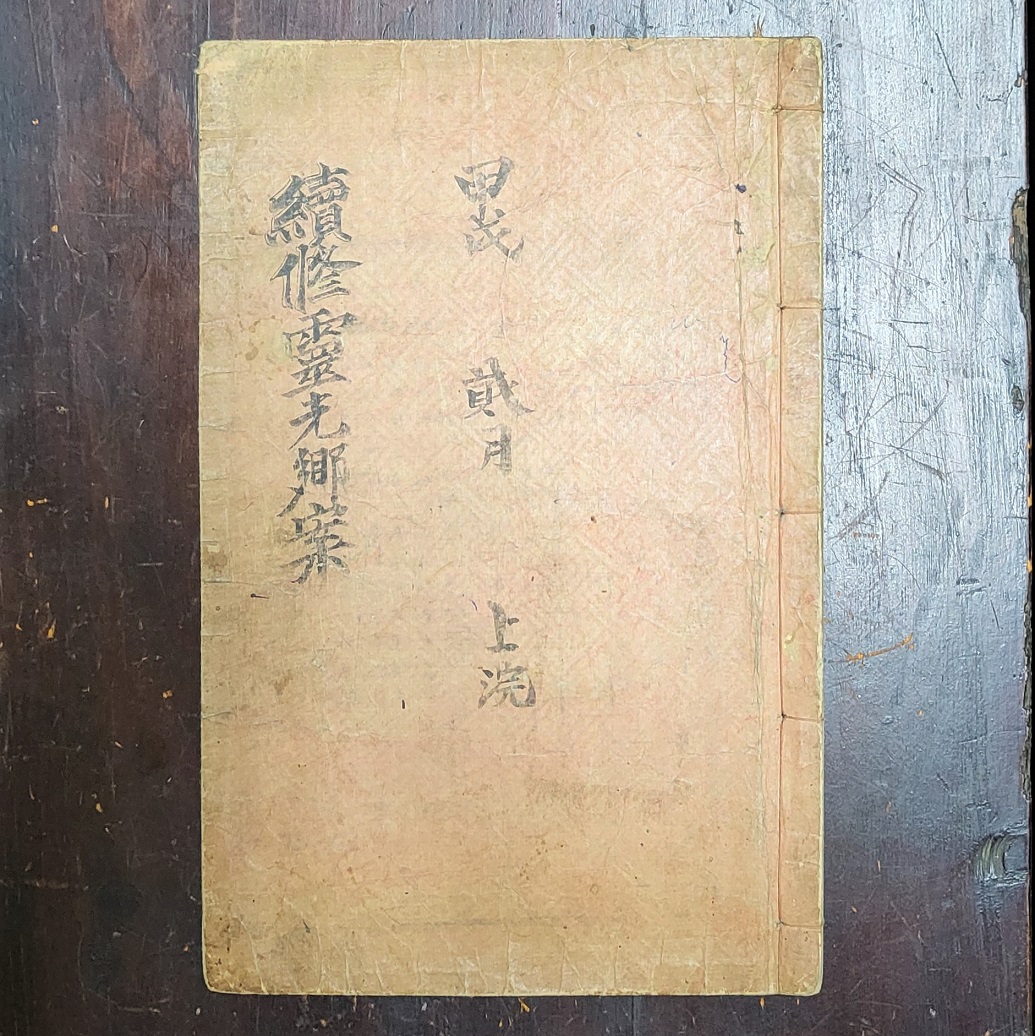 甲戌 貳月 上浣
續修靈光鄕案